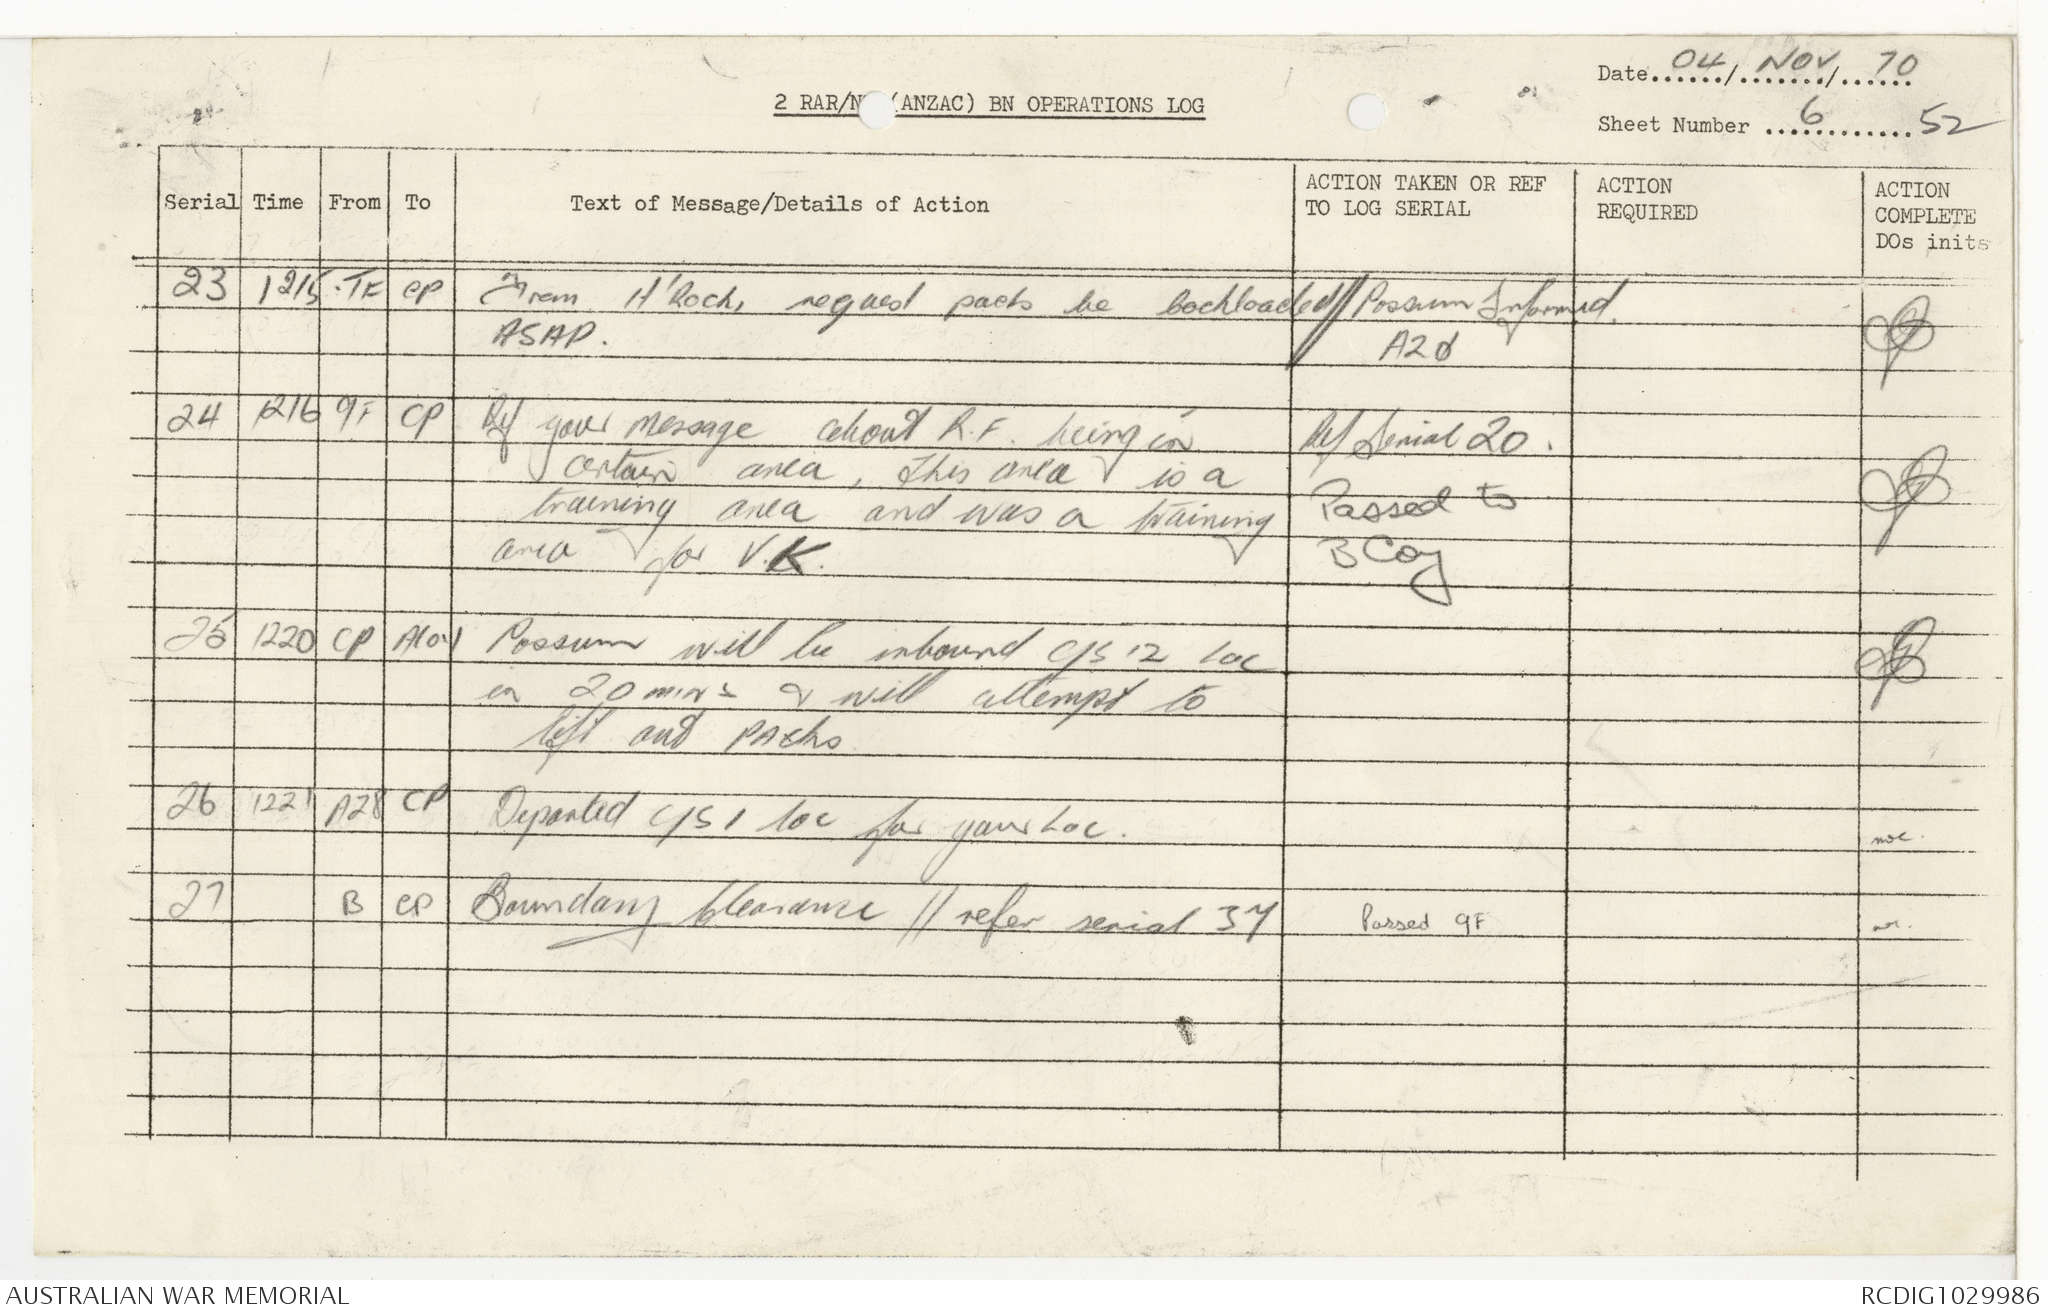 Date 04 / NOV / 70
2 RAR/N (ANZAC) BN OPERATIONS LOG
Sheet Number 6 52
Serial Time From To Text of Message/Details of Action ACTION TAKEN OR REF TO LOG SERIAL ACTION REQUIRED ACTION COMPLETE DOs inits
23 1215 TF CP From H'Rock, request packs be backloaded // Possum Informed.
ASAP. A20
24 1216 9F CP Ref your message about R.F. being in Ref Serial 20.
certain area, this area is a
training area and was a training Passed to
area for V.K. B Coy
25 1220 CP Possum will be inbound C/S 12 loc
in 20 mins & will attempt to
lift out packs
26 1221 A28 CP Departed C/S 1 loc for your loc.
27 B CP Boundary clearance // refer serial 37 Passed 9F
AUSTRALIAN WAR MEMORIAL
RCDIG1029986